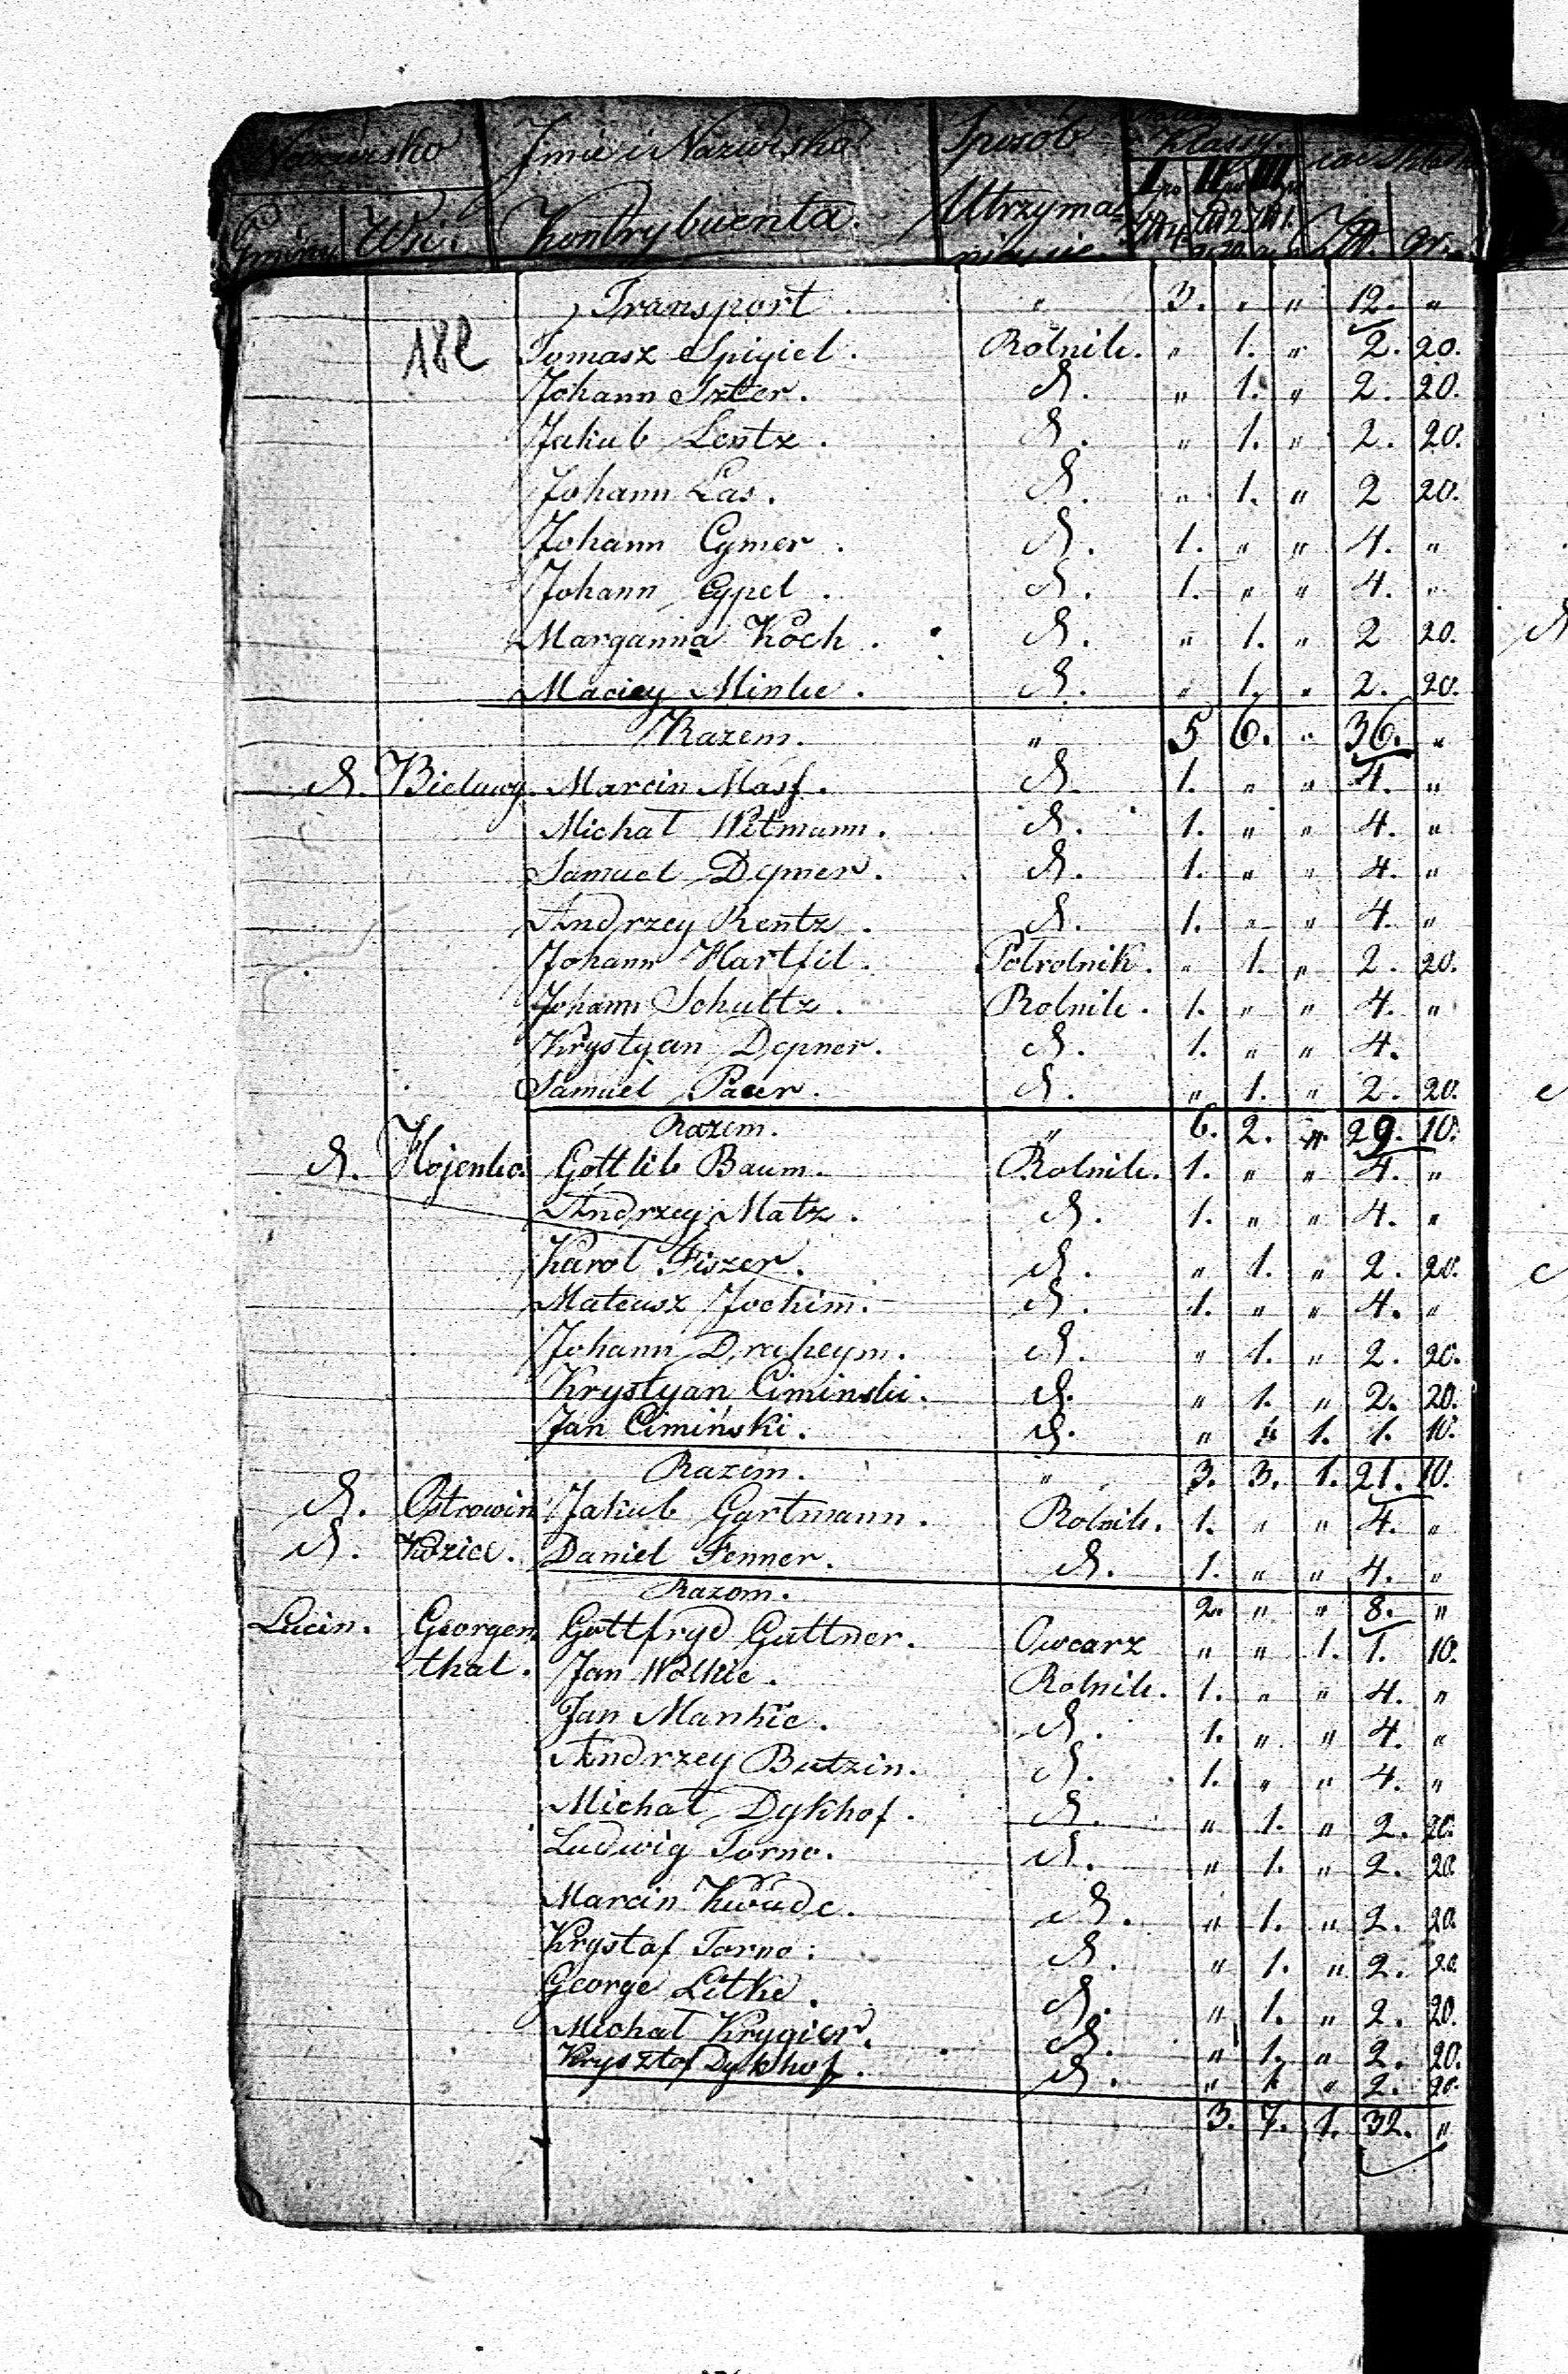 Nazwisko Jmie i Nazwisko Sposób Klassy.
Gminy Wsi. Kontrybuenta. Utrzyma- Złt. gr.
Transport " 3. " " 12. "
182 Tomasz Spigiel. Rolnik. " 1. " 2. 20.
Johann Szter. d. " 1. " 2. 20.
Jakub Lentz. d. " 1. " 2. 20.
Johann Las. d. " 1. " 2 20.
Johann Cymer. d. 1. " " 4. "
Johann Cypel. d. 1. " " 4. "
Marganna Koch. d. " 1. " 2 20.
Maciey Minke. d. " 1. " 2. 20.
Razem. " 5 6. " 36. "
d. Bielawy. Marcin Masf. d. 1. " " 4. "
Michał Witmann. d. 1. " " 4. "
Samuel Depner. d. 1. " " 4. "
Andrzey Rentz. d. 1. " " 4. "
Johann Hartfil. Połrolnik. " 1. " 2. 20.
Johann Schultz. Rolnik. 1. " " 4. "
Krystyan Depner. d. 1. " " 4.
Samuel Pacer. d. " 1. " 2. 20.
Razem. " 6. 2. " 29. 10.
d. Hojenko. Gottlib Baum. Rolnik. 1. " " 4. "
Andrzey Matz. d. 1. " " 4. "
Karol Fiszer. d. " 1. " 2. 20.
Mateusz Jochim. d. 1. " " 4. "
Johann Draheym. d. " 1. " 2. 20.
Krystyan Ciminski. d. " 1. " 2. 20.
Jan Cimiński. d. " " 1. 1. 10.
Razem. " 3. 3. 1. 21. 10.
d. Ostrowin Jakub Gartmann. Rolnik. 1. " " 4. "
d. Kozice. Daniel Fenner. d. 1. " " 4. "
Razem. 2. " " 8. "
Lucin. Georgen Gottfryd Guttner. Owcarz " " 1. 1. 10.
thal. Jan Wolkie. Rolnik. 1. " " 4. "
Jan Mankie. d. 1. " " 4. "
Andrzey Butzin. d. 1. " " 4. "
Michał Dykhof. d. " 1. " 2. 20.
Ludwig Torno. d. " 1. " 2. 20
Marcin Kwade. d. " 1. " 2. 20
Krystof Torno. d. " 1. " 2. 20
George Litke. d. " 1. " 2. 20.
Michał Krygier. d. " 1. " 2. 20.
Krysztof Dykhof. d. " 1. " 2. 20.
3. 7. 1. 32. "